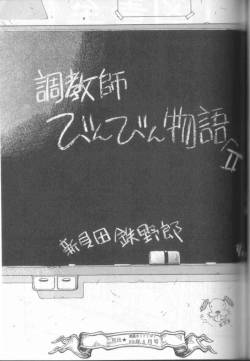 調教師
びんびん物語
II
新貝田鉄野郎